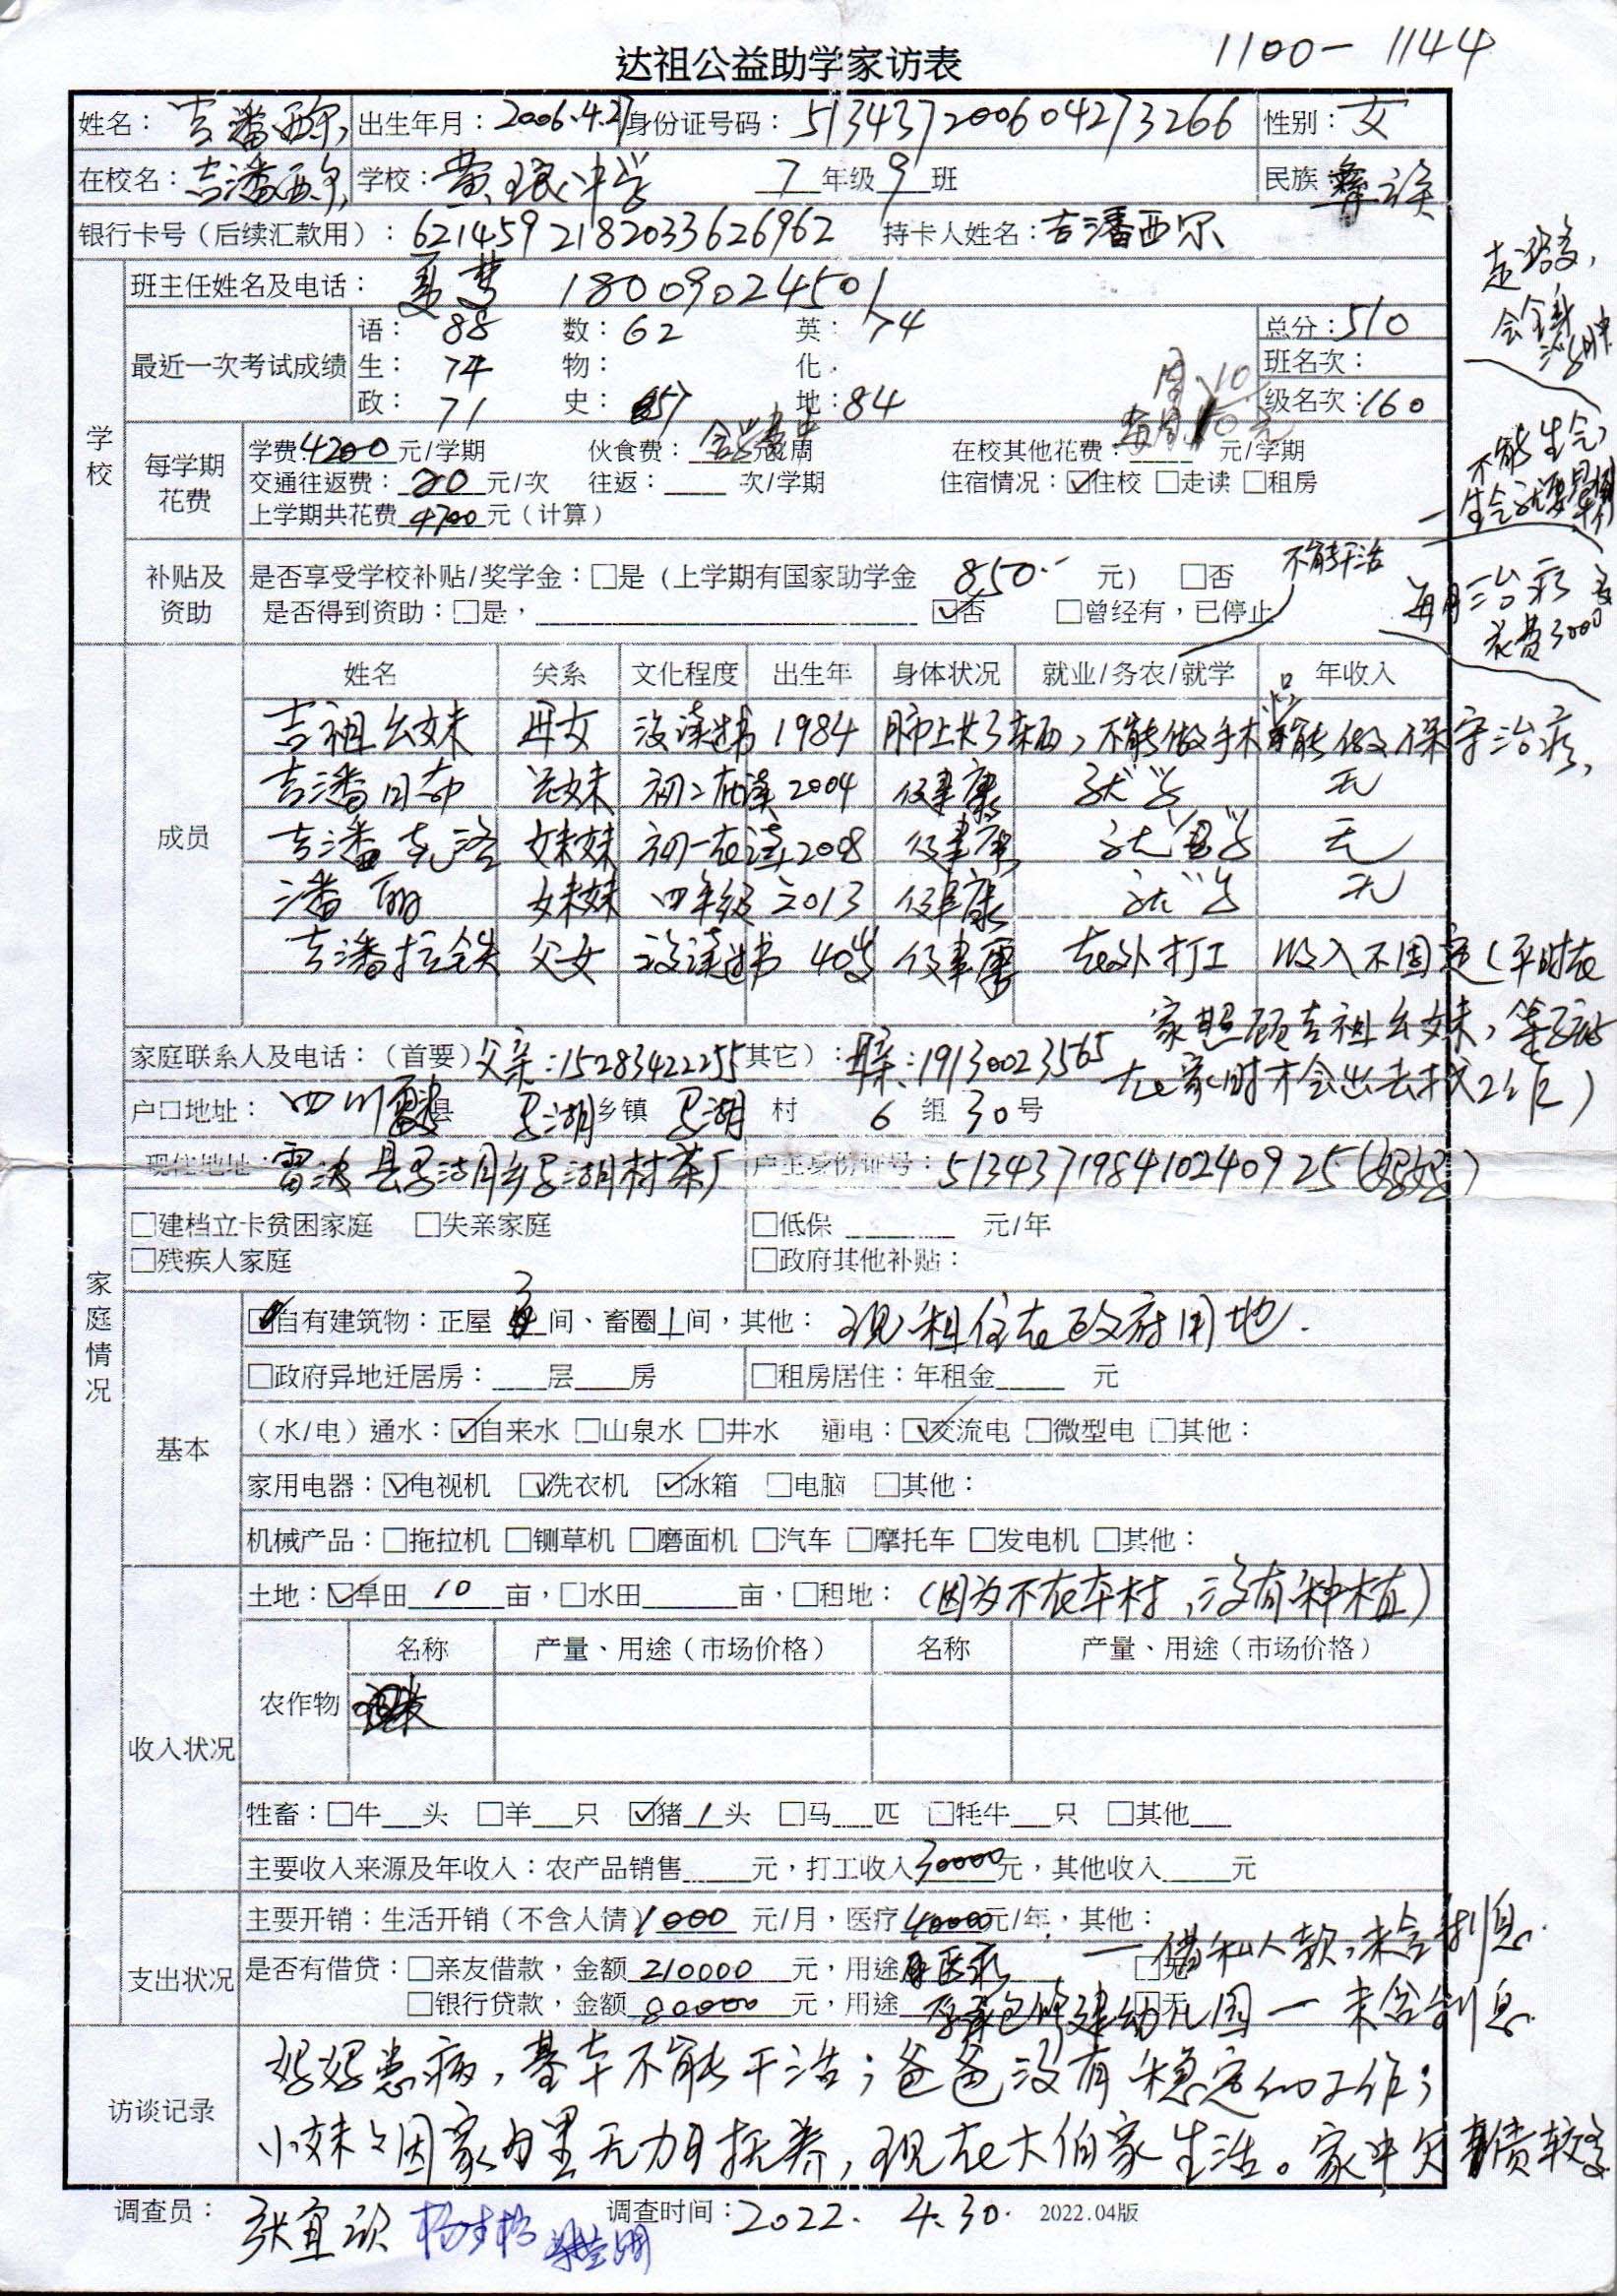 达祖公益助学家访表
1100-1144
姓名：吉潘西尔 出生年月：2006.4.27 身份证号码：513437200604273266 性别：女
在校名：吉潘西尔 学校：黄琅中学 7 年级 9 班 民族 彝族
银行卡号（后续汇款用）：6214592182033626962 持卡人姓名：吉潘西尔
学校
班主任姓名及电话： 夏梦 18009024501
最近一次考试成绩
语：88 数：62 英：74 总分：510
生：74 物： 化： 班名次：
政：71 史：57 地：84 级名次：160
每学期花费
学费：4200 元/学期 伙食费： 元/周 在校其他花费： 元/学期
周10
交通往返费：20 元/次 往返： 次/学期 住宿情况：☑住校 □走读 □租房
上学期共花费 4700 元（计算）
补贴及资助
是否享受学校补贴/奖学金：□是（上学期有国家助学金 850.- 元） □否
是否得到资助：□是， ☑否 □曾经有，已停止
走路多，
会全身
浮肿
不能生气，
生气就要晕倒
不能干活
每月治疗
衣费3000多
成员
姓名 关系 文化程度 出生年 身体状况 就业/务农/就学 年收入
吉祖么妹 母女 没读过书 1984 肺上长了东西，不能做手术 只能做保守治疗，
吉潘日布 兄妹 初二在读 2004 健康 就学 无
吉潘克洛 妹妹 初一在读 2008 健康 就学 无
潘丽 妹妹 四年级 2013 健康 就学 无
吉潘拉铁 父女 没读过书 40岁 健康 在外打工 收入不固定（平时在
家照顾吉祖么妹，等孩子
在家时才会出去找工作）
家庭情况
家庭联系人及电话：（首要）父亲：15283422255 其它）：母亲：19130023565
户口地址：四川 雷波 县 马湖 乡镇 马湖 村 6 组 30 号
现住地址：雷波县马湖乡马湖村茶厂 户主身份证号：513437198410240925（妈妈）
□建档立卡贫困家庭 □失亲家庭 □低保 元/年
□残疾人家庭 □政府其他补贴：
基本
☑自有建筑物：正屋 3 间、畜圈 1 间，其他：现租住在政府用地.
□政府异地迁居房： 层 房 □租房居住：年租金 元
（水/电）通水：☑自来水 □山泉水 □井水 通电：☑交流电 □微型电 □其他：
家用电器：☑电视机 ☑洗衣机 ☑冰箱 □电脑 □其他：
机械产品：□拖拉机 □铡草机 □磨面机 □汽车 □摩托车 □发电机 □其他：
收入状况
土地：☑旱田 10 亩，□水田 亩，□租地：（因为不在本村，没有种植）
农作物
名称 产量、用途（市场价格） 名称 产量、用途（市场价格）
牲畜：□牛 头 □羊 只 ☑猪 1 头 □马 匹 □牦牛 只 □其他
主要收入来源及年收入：农产品销售 元，打工收入 30000 元，其他收入 元
支出状况
主要开销：生活开销（不含人情）1000 元/月，医疗 40000 元/年，其他：
是否有借贷：□亲友借款，金额 210000 元，用途 医疗 □无 一借私人款，未含利息.
□银行贷款，金额 80000 元，用途 承包修建幼儿园 一 未含利息 □无
访谈记录
妈妈患病，基本不能干活；爸爸没有稳定的工作；
小妹妹因家里无力抚养，现在大伯家生活。家中欠债较多
调查员：张宜欣 调查时间：2022. 4.30. 2022.04版